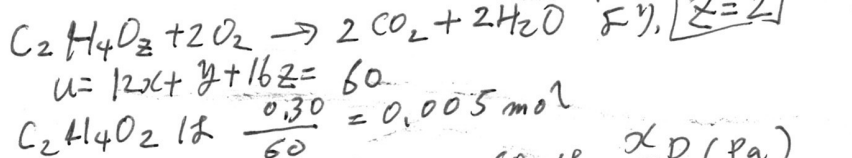 C₂H₄O_z + 2O₂ → 2CO₂ + 2H₂O より, z=2
u= 12x+ y+16z= 60
C₂H₄O₂ は 0.30/60 = 0.005 mol
x P (Pa)